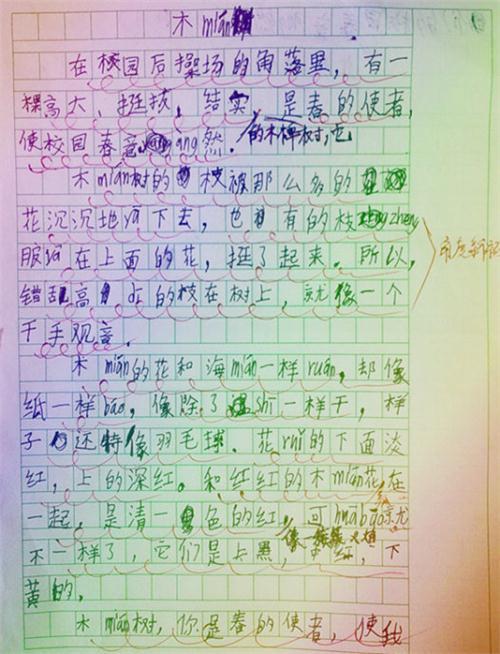 木mián
在校园后操场的角落里，有一
棵高大、挺拔、结实，是春的使者，
使校园春意àng然.的木棉树,它
木mián树的枝被那么多的
花沉沉地ya下去，也有的枝zhēng
服ya在上面的花，挺了起来。所以，
错乱高di的枝在树上，就像一个
千手观音。
木mián的花和海mián一样ruǎn，却像
纸一样báo，像除了shī一样干，样
子还特像羽毛球．花ruǐ的下面淡
红，上的深红。和红红的木mián花在
一起，是清一色的红，可huābāo就
像一簇簇火焰
不一样了，它们是上黑，中红，下
黄的，
木mián树，你是春的使者，使我